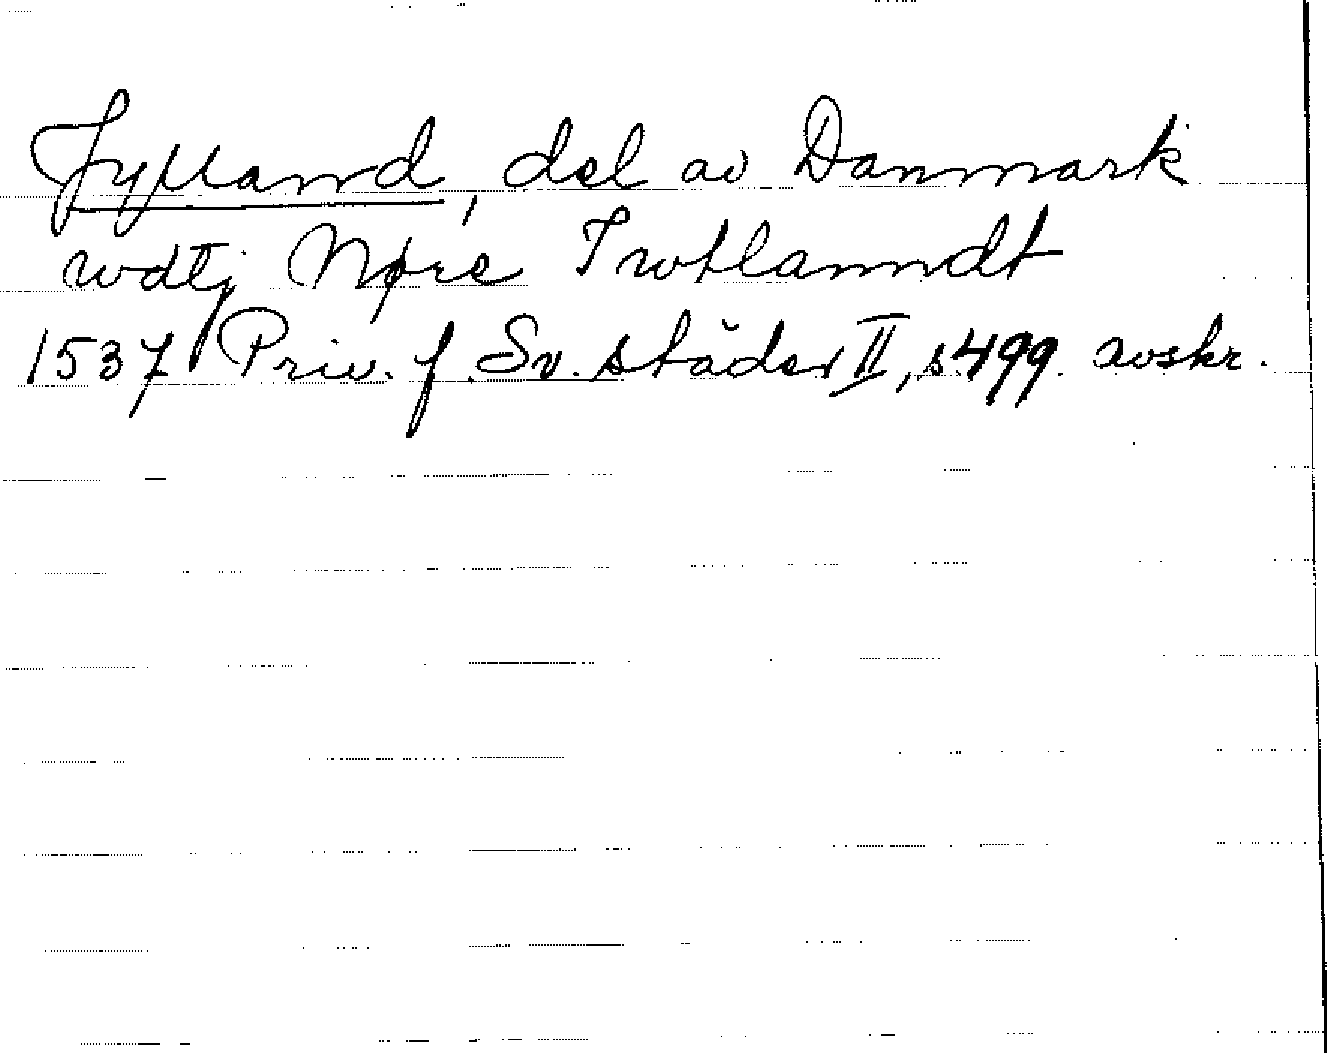 Jylland, del av Danmark
wdtj Nøre Iwtlanndt
1537 Priv. f. Sv. städer II, s 499 avskr.